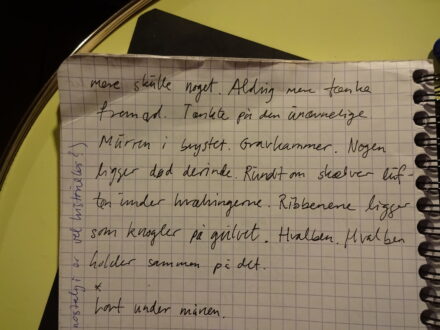 mere skulle noget. Aldrig mere tænke
fremad. Tænkte på den unævnelige
Muren i brystet. Gravkammer. Nogen
ligger død derinde. Rundt om skælver luf-
ten under hvælvingerne. Ribbenene ligger
som knogler på gulvet. Hvalben. Hvalben
holder sammen på det.
*
Lort under månen.
nostalgi er vel historieløs